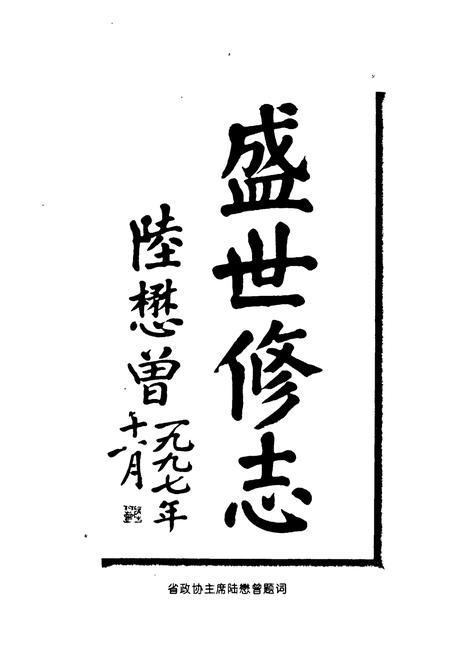 盛世修志
陸懋曾
一九九七年
十八月
省政协主席陆懋曾题词